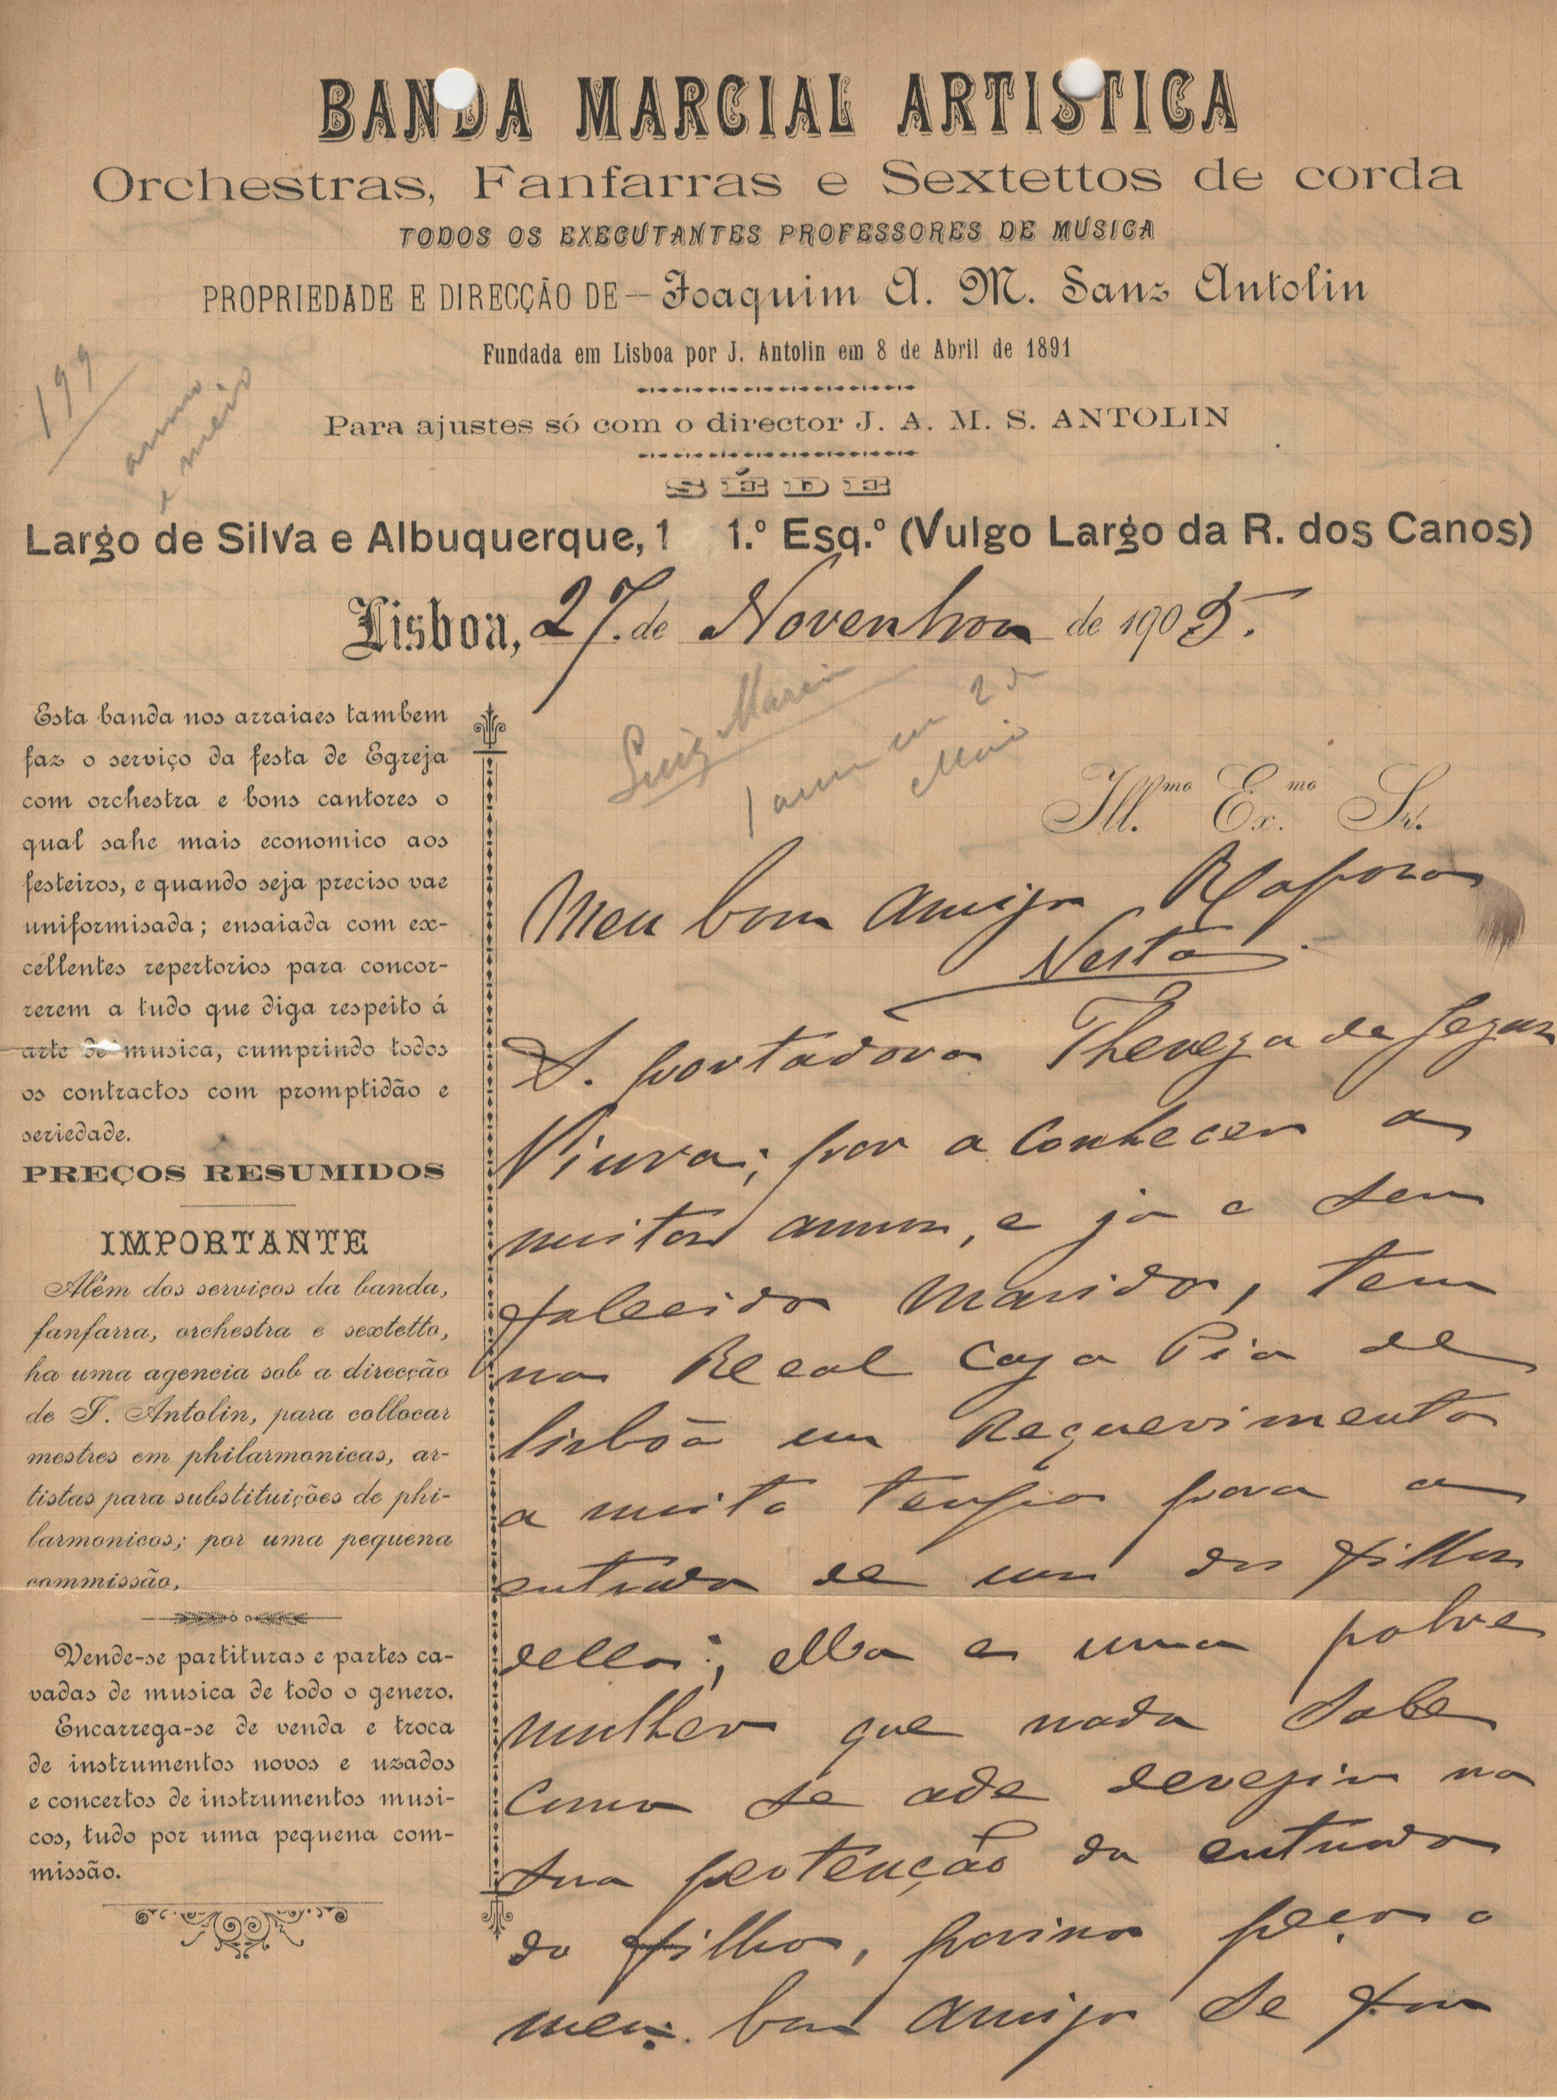 BANDA MARCIAL ARTISTICA
Orchestras, Fanfarras e Sextettos de corda
TODOS OS EXECUTANTES PROFESSORES DE MUSICA
PROPRIEDADE E DIRECÇÃO DE — Joaquim A. M. Sans Antolin
Fundada em Lisboa por J. Antolin em 8 de Abril de 1891
199
anno
e meio
Para ajustes só com o director J. A. M. S. ANTOLIN
SÉDE
Largo de Silva e Albuquerque, 1 1.º Esq.º (Vulgo Largo da R. dos Canos)
Lisboa, 27 de Novenbro de 1905.
Luiz Maria
1 anno em 2 de
Maio
Esta banda nos arraiaes tambem
faz o serviço da festa de Egreja
com orchestra e bons cantores o
qual sahe mais economico aos
festeiros, e quando seja preciso vae
uniformisada; ensaiada com ex-
cellentes repertorios para concor-
rerem a tudo que diga respeito á
arte de musica, cumprindo todos
os contractos com promptidão e
seriedade.
PREÇOS RESUMIDOS
IMPORTANTE
Além dos serviços da banda,
fanfarra, orchestra e sextetto,
ha uma agencia sob a direcção
de J. Antolin, para collocar
mestres em philarmonicas, ar-
tistas para substituições de phi-
larmonicos; por uma pequena
commissão.
Vende-se partituras e partes ca-
vadas de musica de todo o genero.
Encarrega-se de venda e troca
de instrumentos novos e uzados
e concertos de instrumentos musi-
cos, tudo por uma pequena com-
missão.
Ill.mo Ex.mo Sr.
Meu bom amigo Raposo
Nesta
A portadora Thereza de Jezus
Viuva; por a conhecer a
muitos annos, e ja o seu
falecido marido, tem
na Real Caza Pia de
lisbôa um Requerimento
a muito tempo para a
entrada de um dos filhos
della; ella e uma pobre
mulher que nada sabe
como se ade deregir na
sua pertenção da entrada
do filho, porisso peço o
meu bom amigo se for